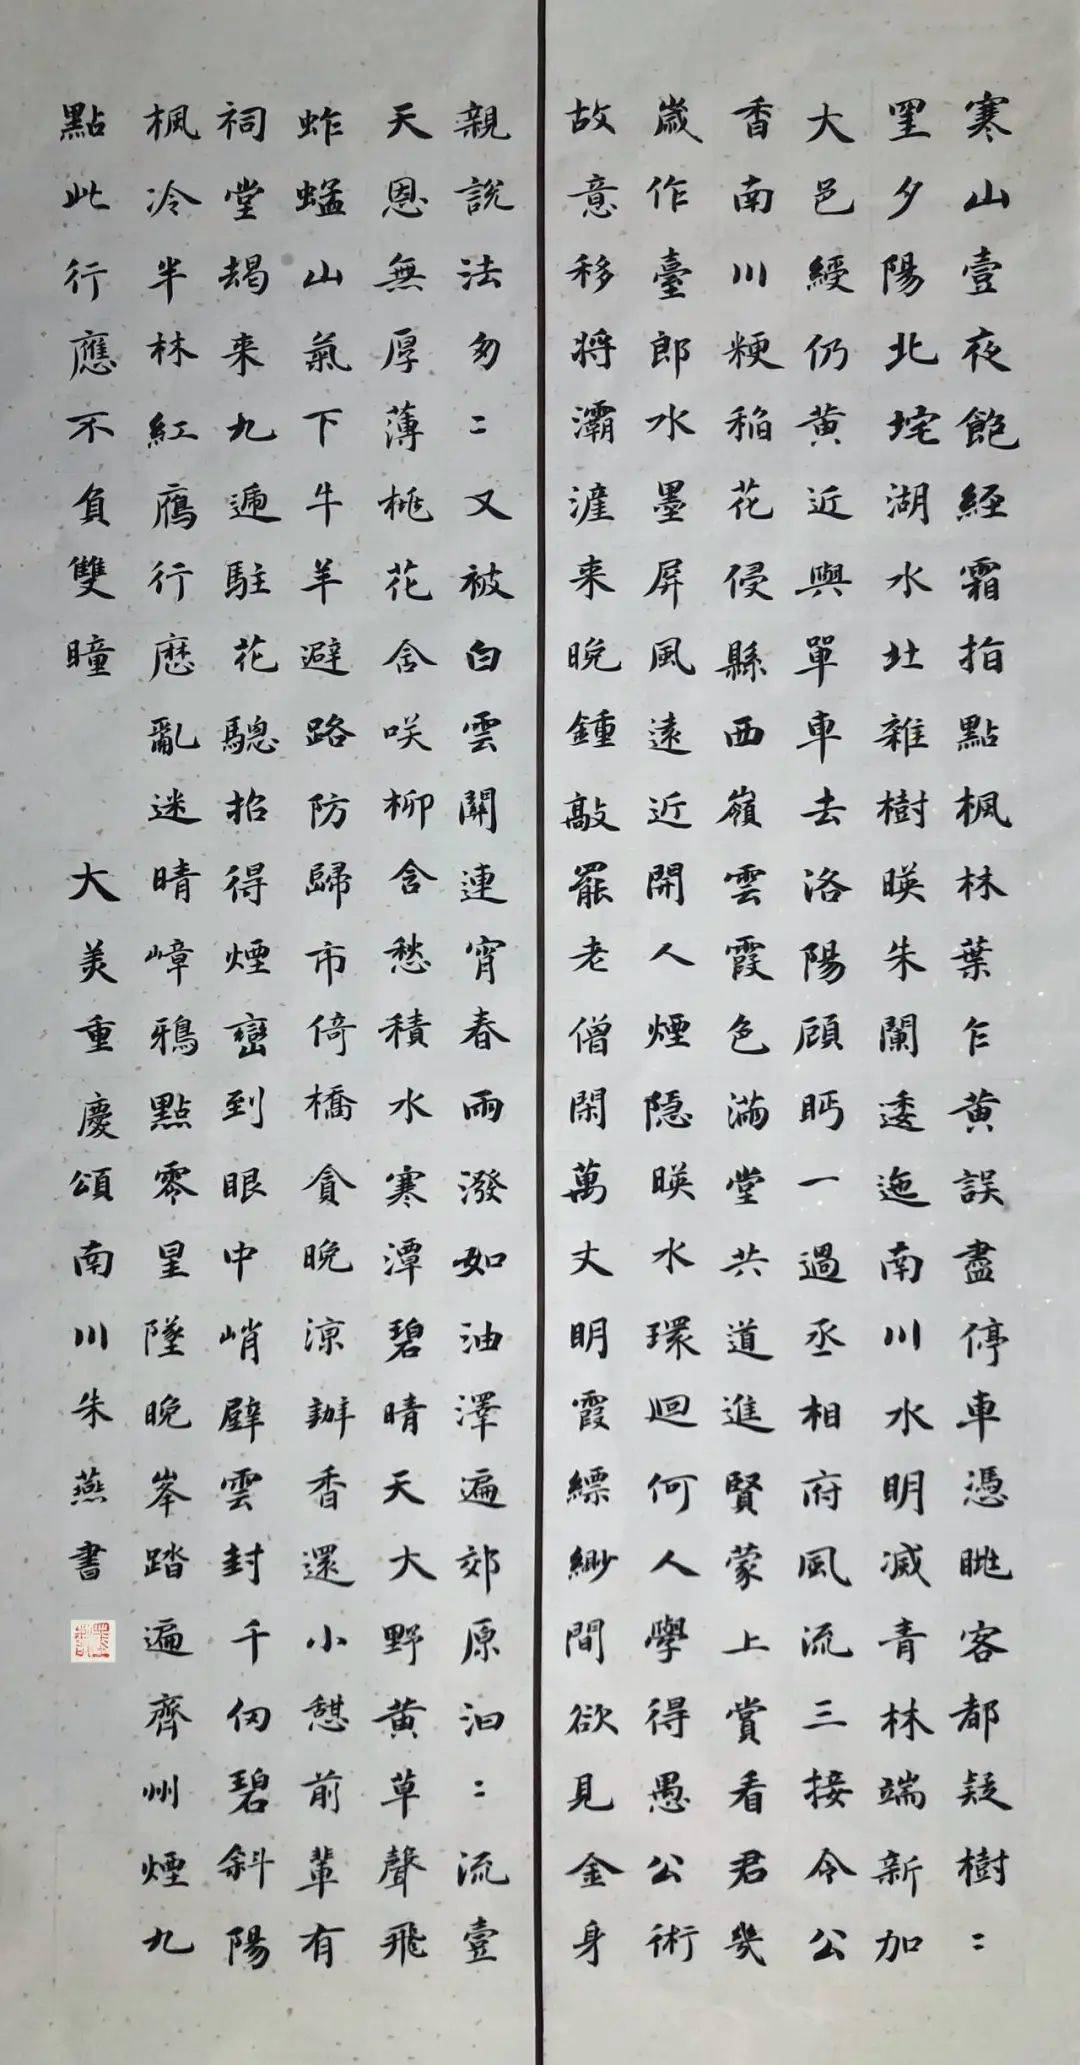 寒山壹夜飽經霜指點楓林葉乍黄誤盡停車憑眺客都疑樹〻
里夕陽北垞湖水北雜樹暎朱闌逶迤南川水明滅青林端新加
大邑綬仍黄近與單車去洛陽顧眄一過丞相府風流三接令公
香南川粳稻花侵縣西嶺雲霞色滿堂共道進賢蒙上賞看君幾
歲作臺郎水墨屏風遠近開人煙隱暎水環迴何人學得愚公術
故意移将灞滻来晚鍾敲罷老僧閑萬丈明霞縹緲間欲見金身
親說法匆〻又被白雲關連宵春雨潑如油澤遍郊原汩〻流壹
天恩無厚薄桃花含咲柳含愁積水寒潭碧晴天大野黄草聲飛
蚱蜢山氣下牛羊避路防歸市倚橋貪晚涼辦香還小憩前輩有
祠堂朅来九遞駐花驄招得煙巒到眼中峭壁雲封千仞碧斜陽
楓冷半林紅鴈行歷亂迷晴嶂鴉點零星墜晚峯踏遍齊州煙九
點此行應不負雙瞳 大美重慶頌南川朱燕書